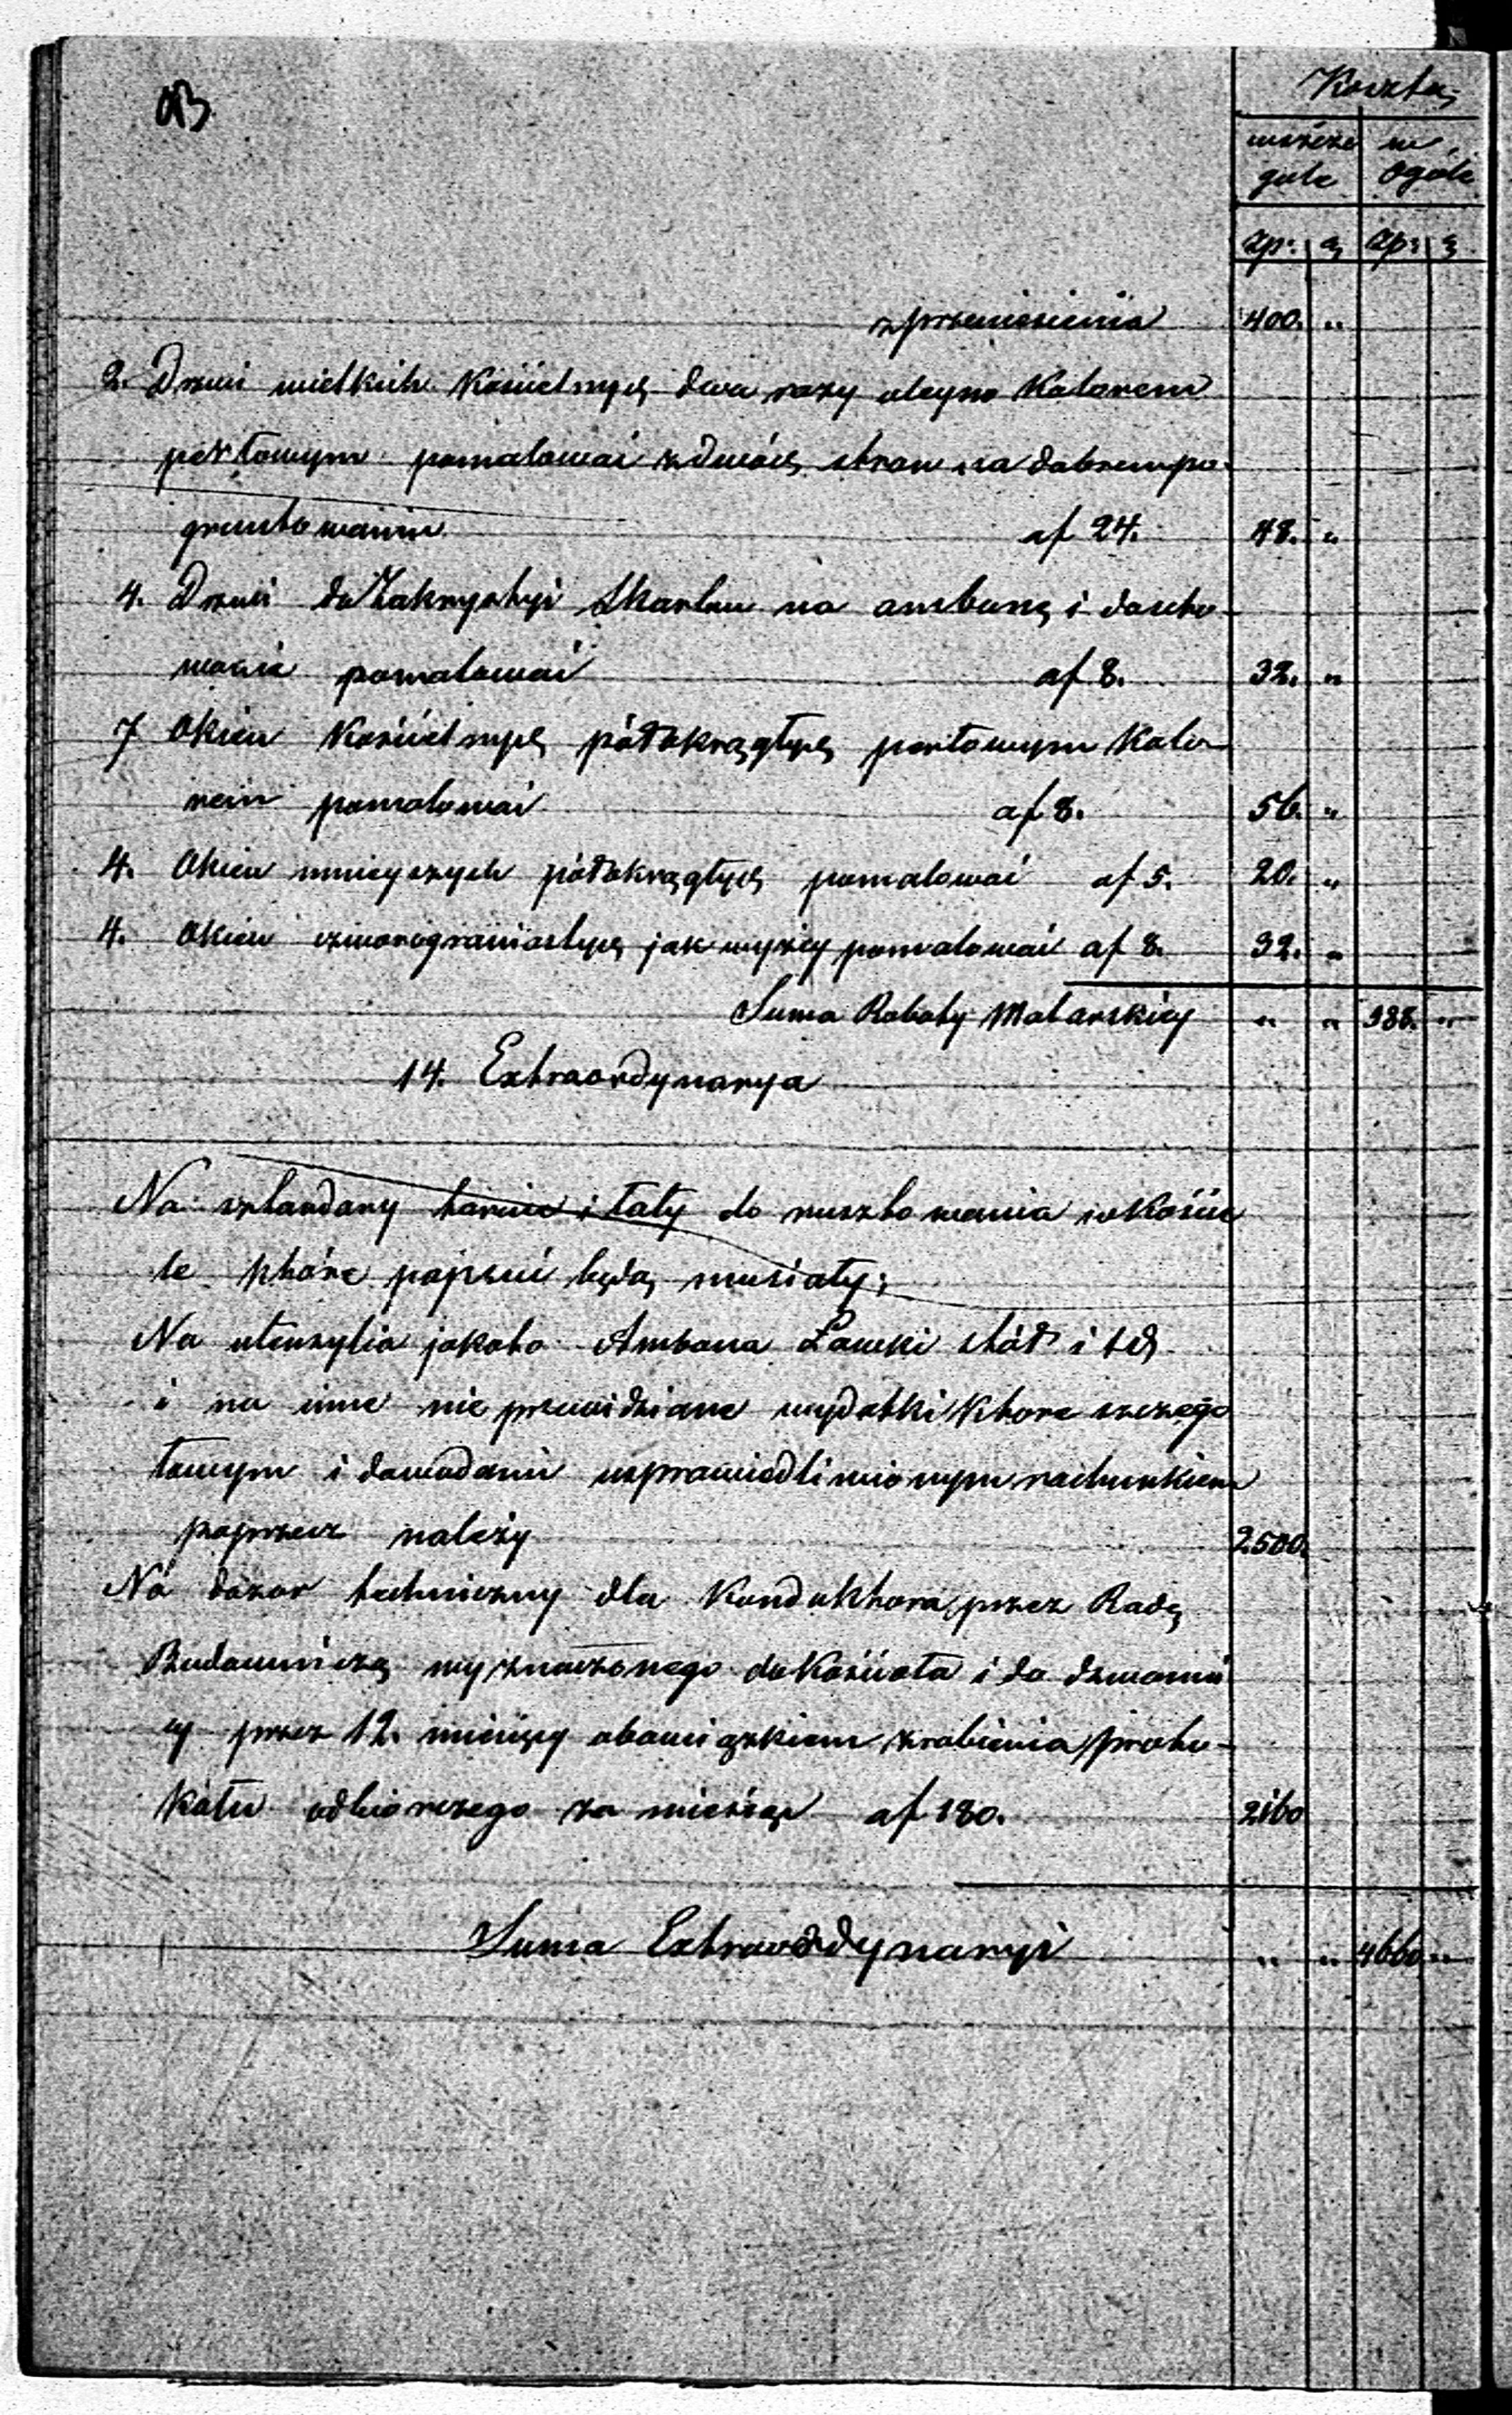 Koszta
wszcze w
góle Ogóle
zp: g zp: g
z przeniesienia 400. "
2. Drzwi wielkich Kościelnych dwa razy oleyno Kolorem
perłowym pomalować z dwóch stron na dobrem po-
gruntowaniu af 24. 48. "
4. Drzwi do Zakrystyi Skarbcu na ambonę i dacho
wanie pomalować af 8. 32. "
7 Okien Kościelnych półokrągłych perłowym Kolo-
rem pomalować af 8. 56. "
4. Okien mnieyszych półokrągłych pomalować af 5. 20. "
4. Okien czworograniastych jak wyżey pomalować af 8. 32. "
Suma Roboty Malarskiey " " 588. "
14. Extraordynarya
Na sztandary tarcice i łaty do rusztowania w Koście
le które popsuć będą musiały;
Na utensylia jakoto Ambona Ławki stół i td
i na inne nie przewidziane wydatki które szczegó
łowym i dowodami usprawiedliwionym rachunkiem
poprzeć należy 2500.
Na dozor techniczny dla Konduktora przez Radę
Budowniczą wyznaczonego do Kościoła i do dzwonni
cy przez 12. miesięcy obowiązkiem zrobienia proto-
kółu odbiorczego za miesiąc af 180. 2160
Suma Extraordynaryi " " 4660 "